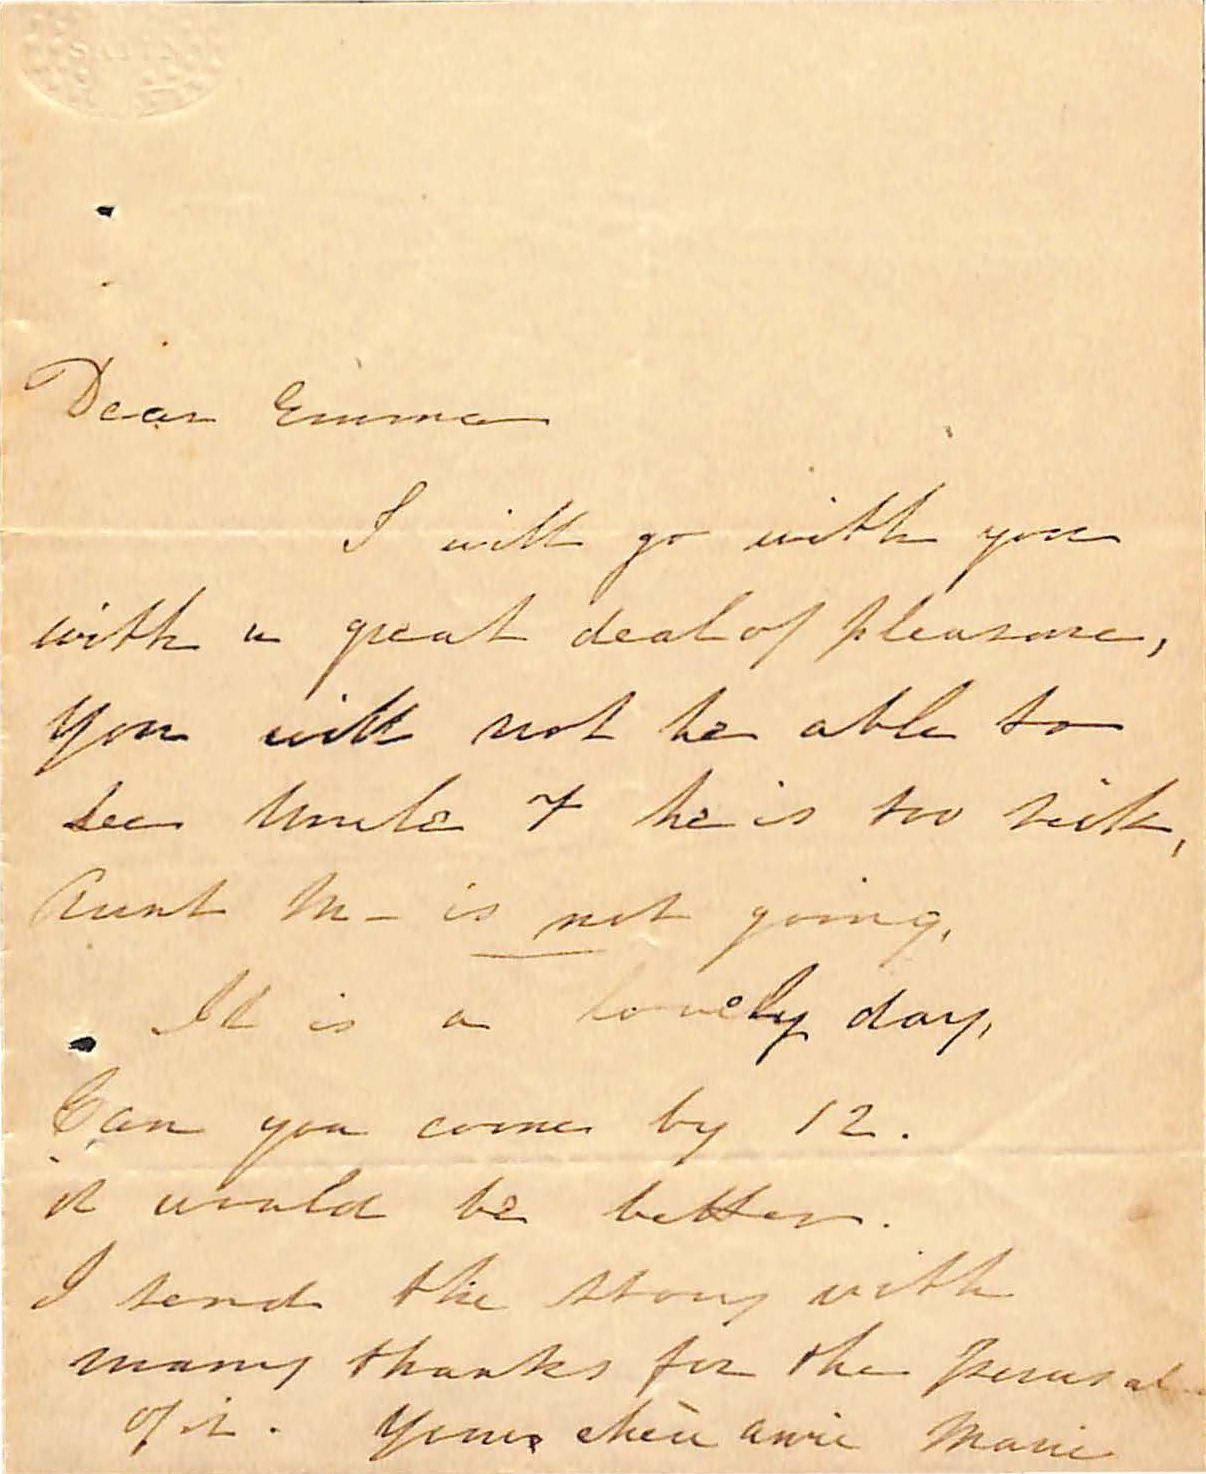 Dear Emma
I will go with you
with a great deal of pleasure,
You will not be able to
see Uncle & he is too sick,
Aunt M- is not going,
It is a lovely day,
Can you come by 12.
it would be better.
I send the story with
many thanks for the perusal
of it. Your chère amie Marie